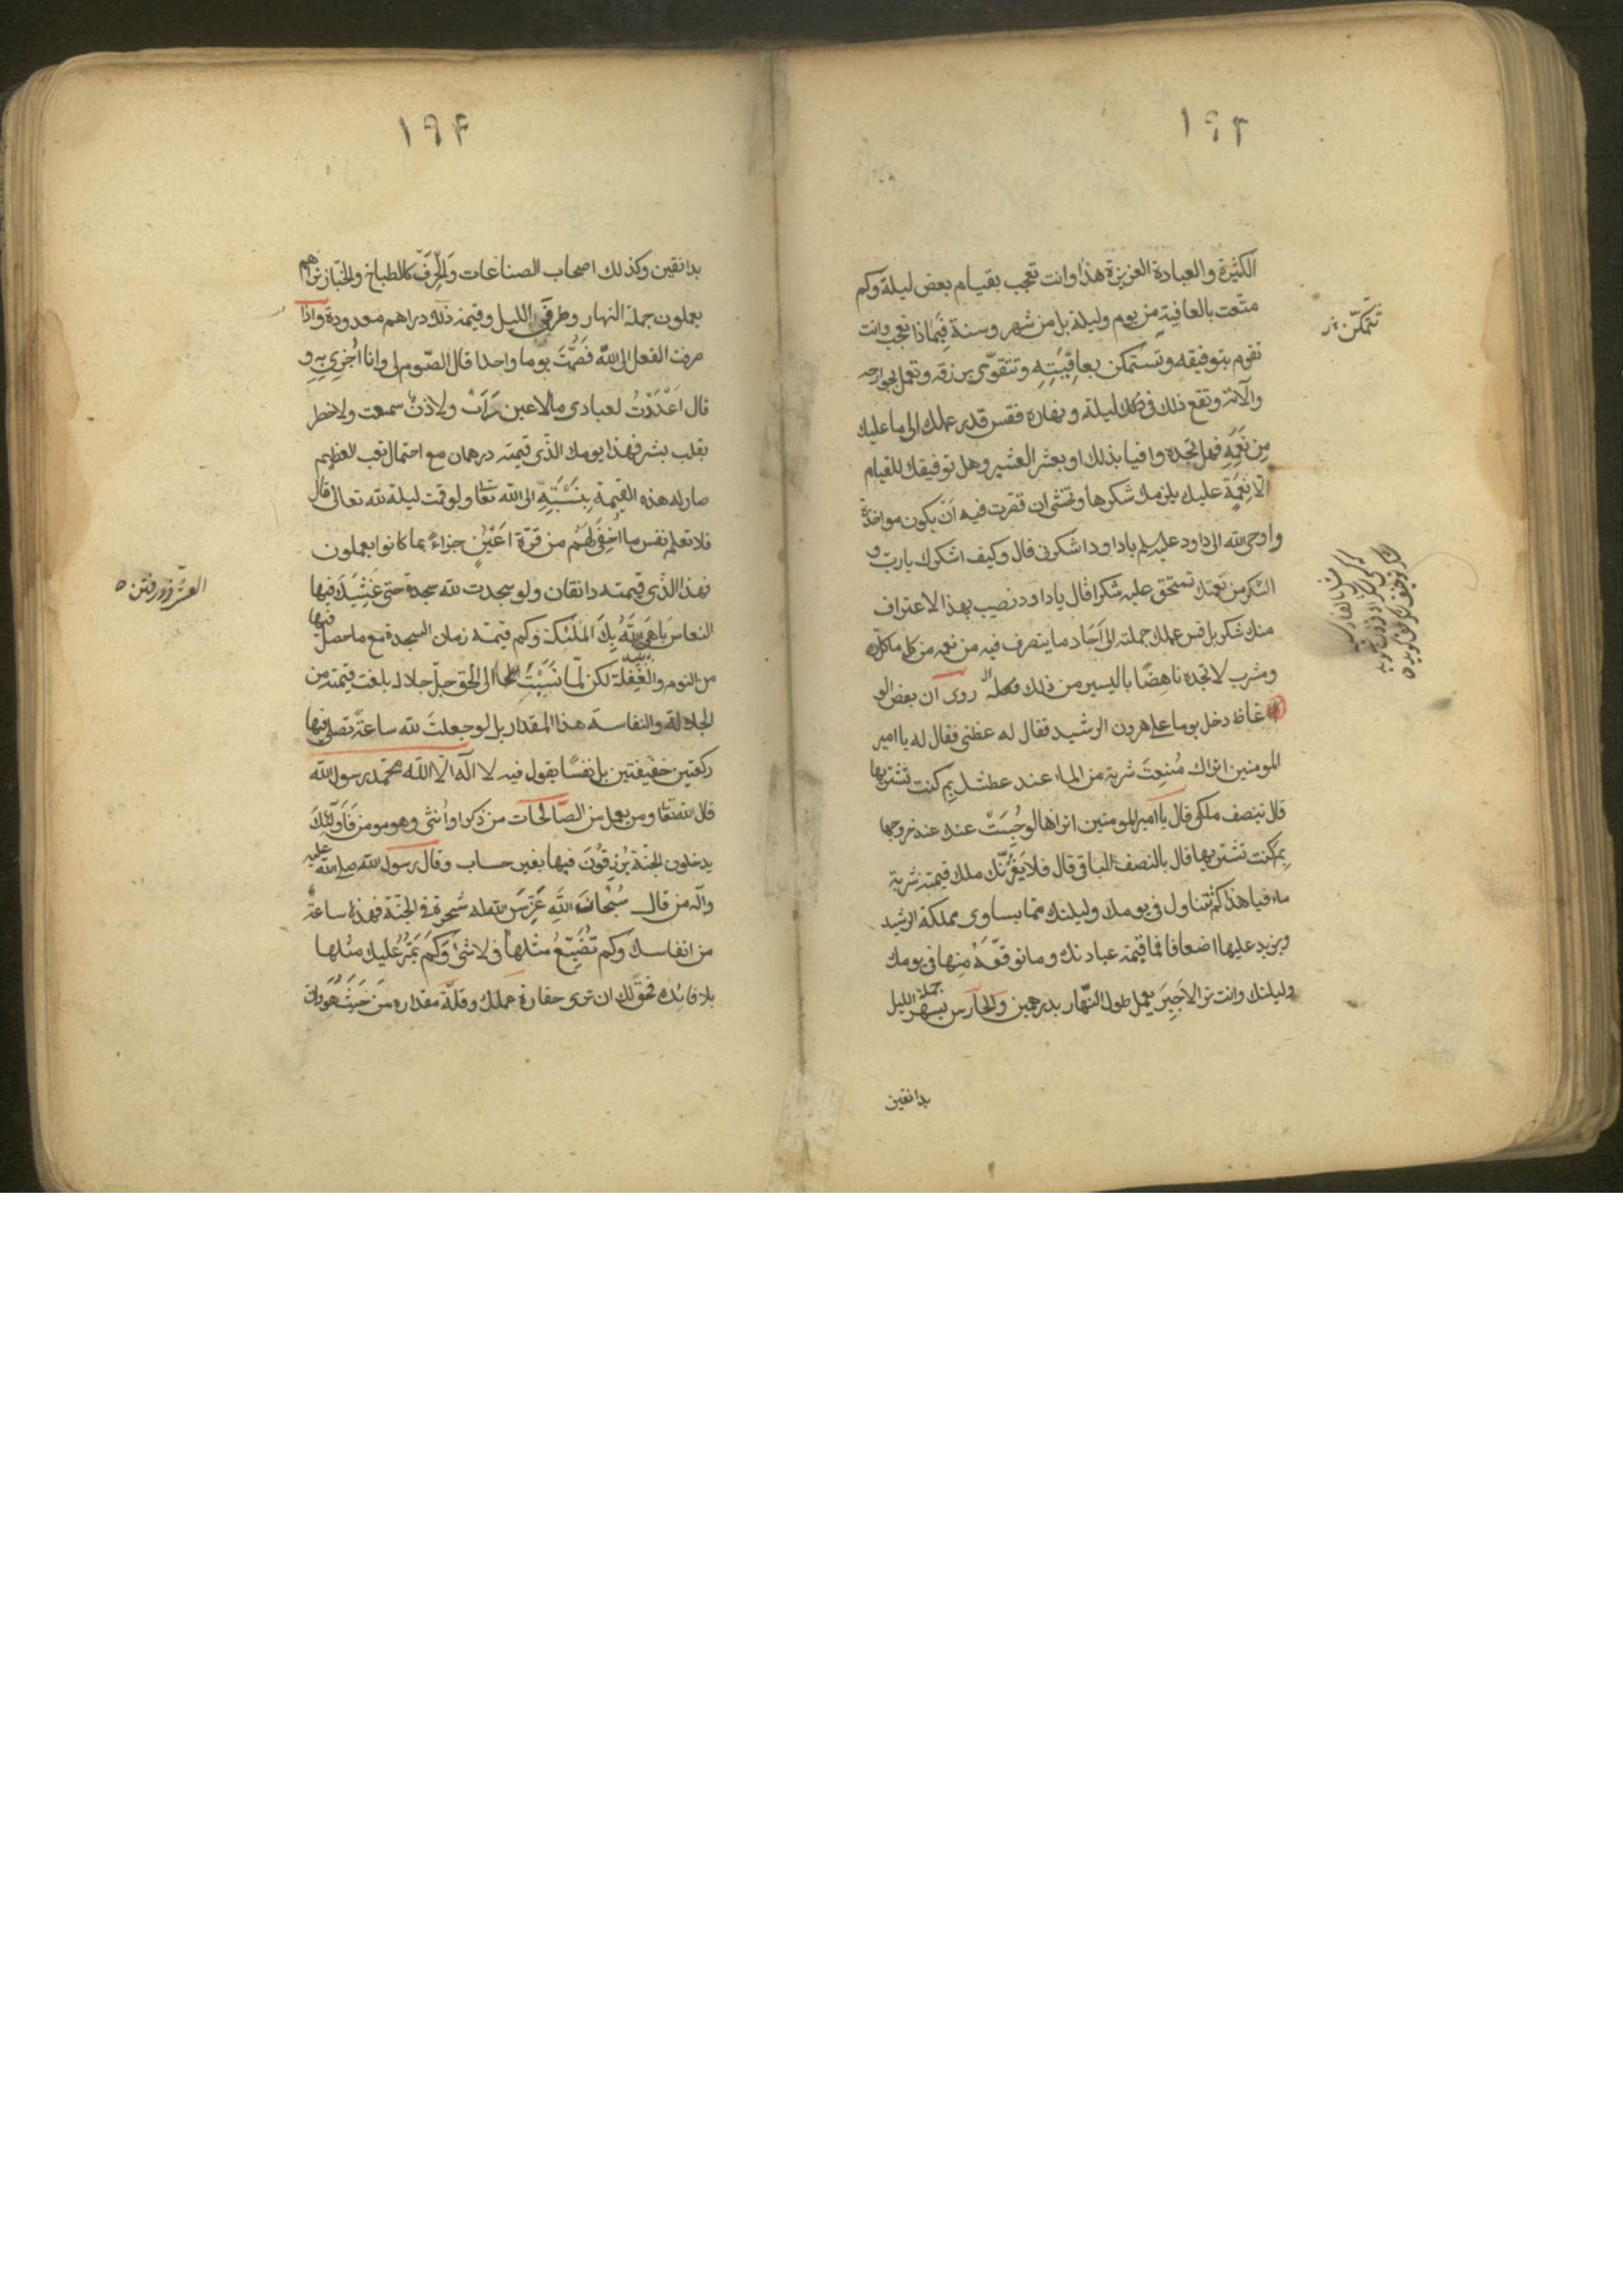 ١٩٣
الكثيرة والعبادة العزيزة هذا وانت تعجب بقيام بعض ليلة وكم
متّعت بالعافية من يوم وليلة بل من شهر وسنة فبماذا تعجب وانت
تقوم بتوفيقه وتستمكن بعافِيَتِهِ وتتقوّى برزقه وتعمل بجوارحه
وآلاته وتقع ذلك في ملك ليله ونهاره فقس قدر عملك الى ما عليك
مِن نِعَمِهِ فهل تجده وافيا بذلك او بعشر العشير وهل توفيقك للقيام
الّا نِعمَة عليك يلزمك شكرها وتخشى ان قصرت فيه اَن يكون مواخذة
واوحى الله الى داود عليه السلم يا داود اشكرني قال وكيف اشكرك يا ربّ و
الشكر من نعمتك تستحق عليه شكرا قال يا داود رضيت بهذا الاعتراف
منك شكر بل قس عملك جملته الى آحاد ما يتصرف فيه من نعمه من كل ماكل
ومشرب لا تجده ناهِضًا باليسير من ذلك روى ان بعض الو
عاظ دخل يوما على هرون الرشيد فقال له عظني فقال له يا امير
المومنين اتراك مُنِعتَ شربة من الماء عند عطشك بِمَ كنت تشتريها
قال بنصف ملكي قال يا امير المومنين اتراها لو حُبِسَتْ عنك عند خروجها
بِم كنت تشتريها قال بالنصف الباقي قال فلا يَغُرَّنّك ملك قيمته شربة
ماء فيا هذا كم تتناول في يومك وليلتك ممّا يساوى مملكة الرشيد
ويزيد عليها اضعافا فما قيمة عبادتك وما توقّعه مِنها في يومك
وليلتك وانت ترى الاَجِيرَ يعمل طول النّهار بدرهمين وَالحَارس يسهر جملة الليل
بدانقين
تتمكّن
١٩۴
بدانقين وكذلك اصحاب الصناعات وَالحِرَفِ كالطباخ والخبّاز تراهم
يعملون جملة النهار وطرفي الليل وقيمة ذلك دراهم معدودة واذا
صرفت الفعل الى الله فَصُمْتَ يوما واحدا قال الصّوم لي وانا اُجْزِى بِهِ و
قال اَعْدَدْتُ لعبادى ما لا عين رَاَتْ ولا اذن سمعت ولا خطر
بقلب بشر فهذا يومك الّذى قيمته درهمان مع احتمال تعب العظيم
صار له هذه القيمة بِنِسْبَتِهِ الى الله تعا ولو قمت ليلة لله تعالى قال
فلا تعلم نفس ما اُخْفِيَ لَهُم من قرّة اَعْيُنٍ جزاءً بما كانوا يعملون
فهذا الّذى قيمته دانقان ولو سجدت لله سجدة حتى غَشِيَكَ فيها
النعاسَ بَاهَى اللهُ بِكَ المَلئكة وكم قيمة زمان السجدة مع ما حصل فيها
من النوم والغفلة لكن لمّا نَسَبْتَ الى الحق جلّ جلاله بلغت قيمته من
الجلالة والنفاسة هذا المقدار بل لو جعلتَ لله ساعةً تصلى فيها
ركعتين خفيفتين بل نفسًا يقول فيه لا اله الّا الله محمّد رسول الله
قال الله تعا ومن يعمل من الصّالحات من ذكر او اُنثى وهو مومن فَاُولَئِكَ
يدخلون الجنّة يُرزقُونَ فيها بغير حساب وقال رسول الله صلى الله عليه
وآله من قال سُبْحانَ اللهِ غَرَسَ الله له شجرة في الجنّة فهذه ساعة
من انفاسك وكم تُضَيِّعُ مثلها في لا شئ وَكَم يَمُرُّ عليك مثلها
بلا فائده فحق لك ان ترى حقارة عملك وقلّة مقداره مَن حَيثُ هُوَ وان